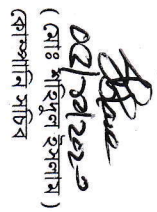 ০৫/১১/২০২০
(মোঃ শহিদুল ইসলাম)
কোম্পানি সচিব